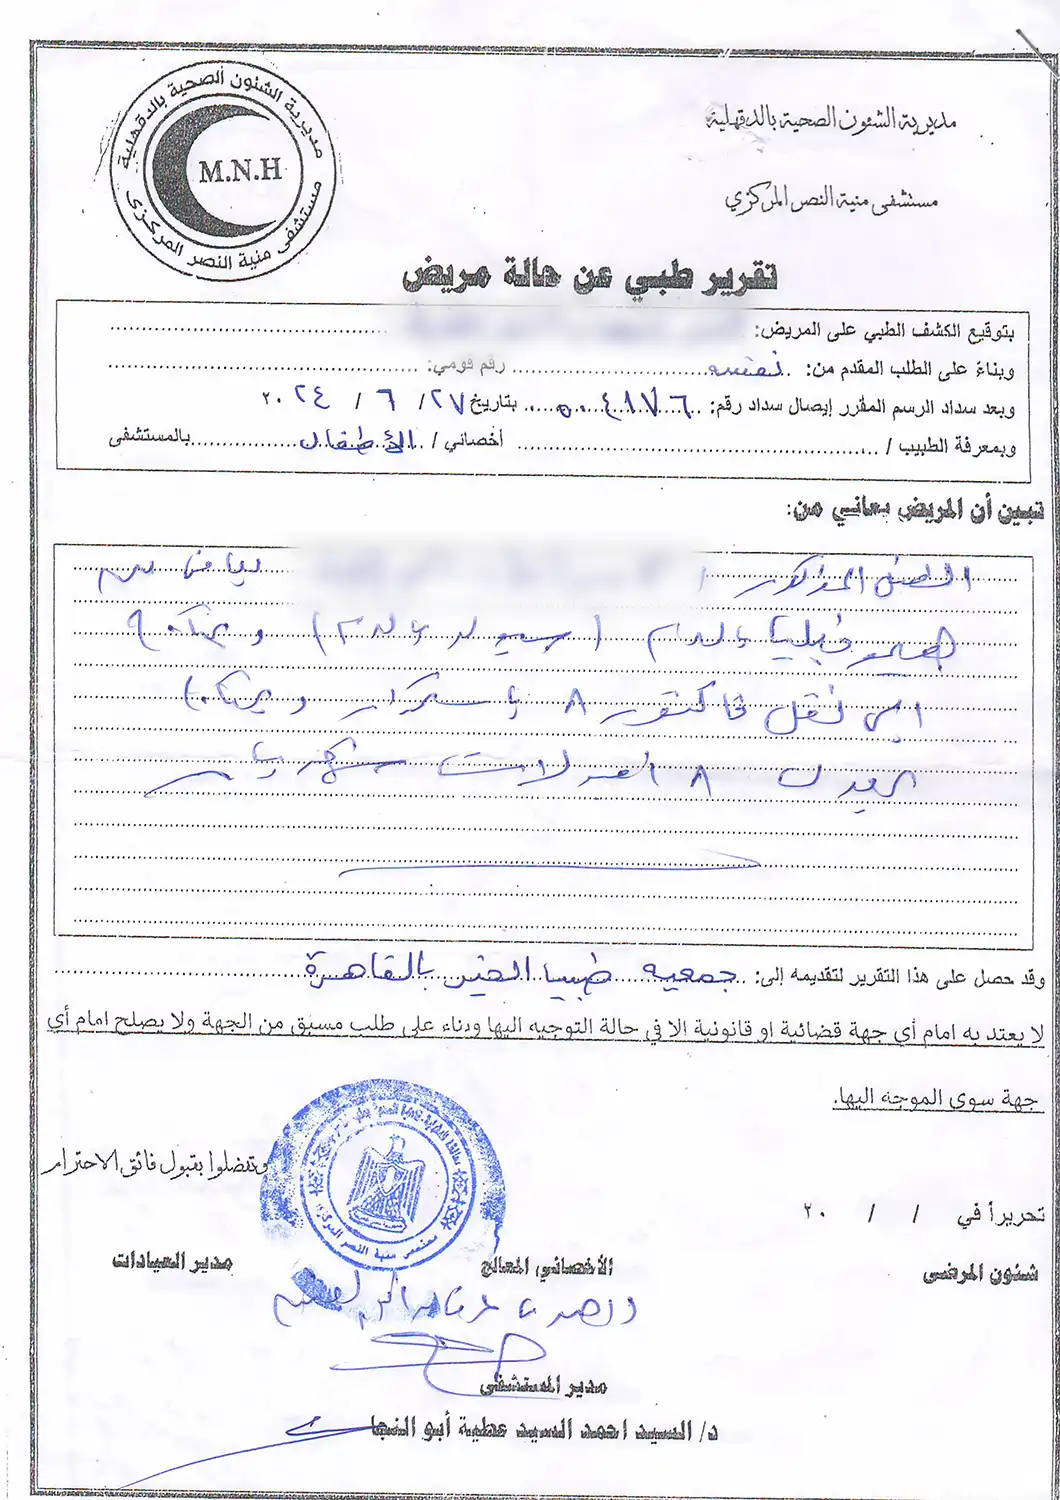 مديرية الشئون الصحية بالدقهلية
مستشفى منية النصر المركزي
مديرية الشئون الصحية بالدقهلية
M.N.H
مستشفى منية النصر المركزى
تقرير طبي عن حالة مريض
بتوقيع الكشف الطبي على المريض:
وبناءً على الطلب المقدم من: نفسه رقم قومي:
وبعد سداد الرسم المقرر إيصال سداد رقم: بتاريخ ٢٧ / ٦ / ٢٠٢٤
وبمعرفة الطبيب / أخصائي / الأطفال بالمستشفى
تبين أن المريض يعاني من:
الطفل المذكور / يعانى من
هيموفيليا بالدم (سيولة بالدم) ويحتاج
الى نقل فاكتور ٨ باستمرار ويحتاج
٨ امبولات شهريا
وقد حصل على هذا التقرير لتقديمه إلى: جمعيه الخير بالقاهرة
لا يعتد به امام أي جهة قضائية او قانونية الا في حالة التوجيه اليها وبناء على طلب مسبق من الجهة ولا يصلح امام أي
جهة سوى الموجه اليها.
وتفضلوا بقبول فائق الاحترام
تحريراً في / / ٢٠
شئون المرضى
الأخصائي المعالج
مدير العيادات
مدير المستشفى
د/ السيد احمد السيد عطية أبو النجا